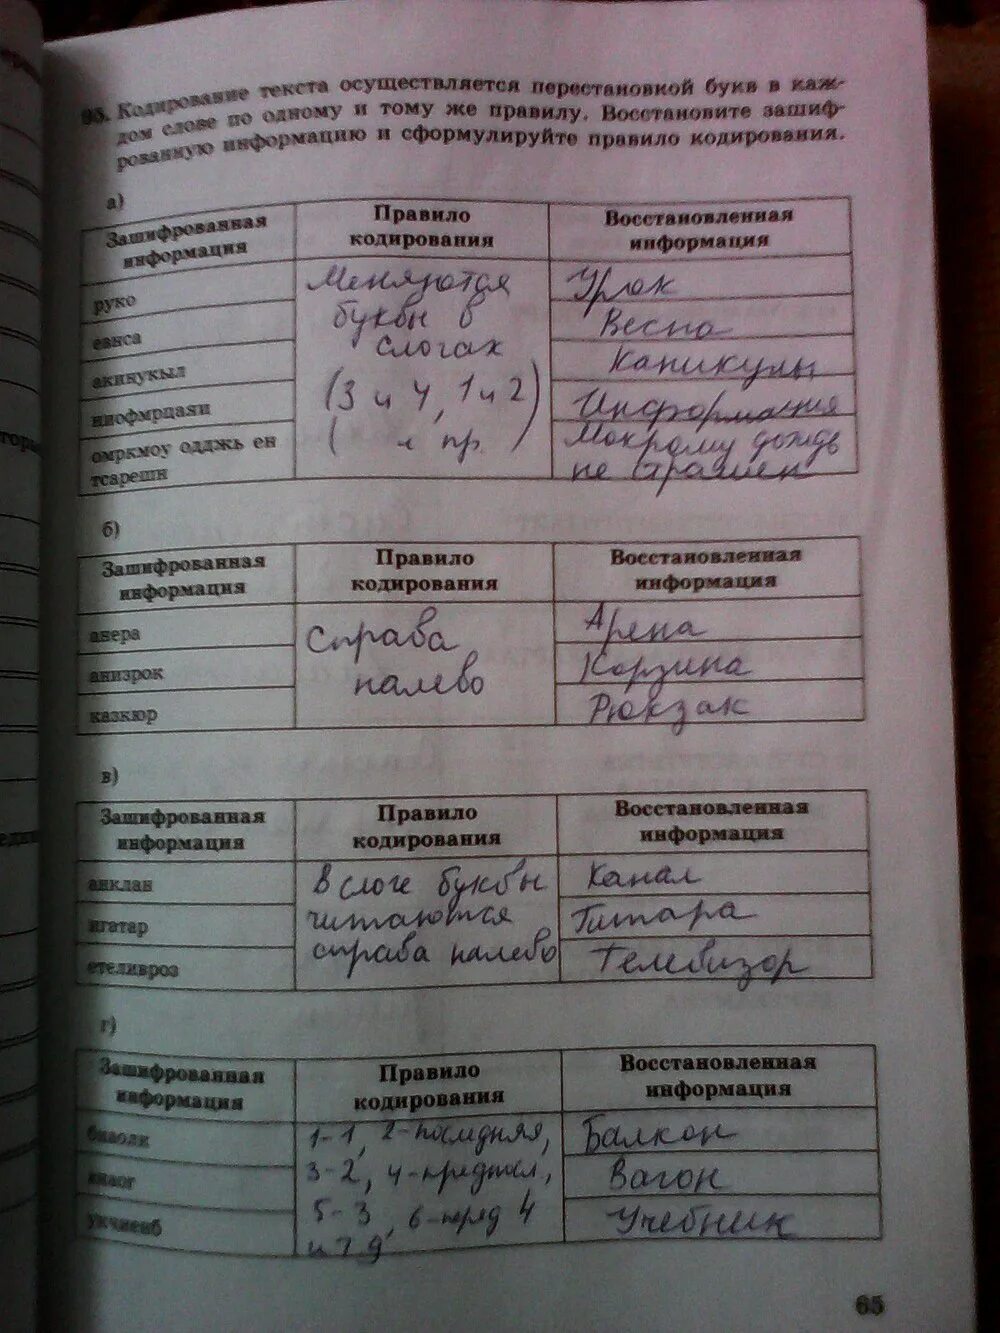 95. Кодирование текста осуществляется перестановкой букв в каж-
дом слове по одному и тому же правилу. Восстановите зашиф-
рованную информацию и сформулируйте правило кодирования.
а)
Зашифрованная информация
Правило кодирования
Восстановленная информация
руко
Меняются
буквы в
слогах
(3 и 4, 1 и 2)
( и пр. )
Урок
евнса
Весна
акинукыл
Каникулы
ниофмрцаяи
Информация
омркмоу одджь ен
тсарешн
Мокрому дождь
не страшен
б)
Зашифрованная информация
Правило кодирования
Восстановленная информация
анера
Справа
налево
Арена
анизрок
Корзина
казкюр
Рюкзак
в)
Зашифрованная информация
Правило кодирования
Восстановленная информация
анклан
В слоге буквы
читаются
справа налево
Канал
игатар
Гитара
етеливроз
Телевизор
г)
Зашифрованная информация
Правило кодирования
Восстановленная информация
бнаолк
1-1, 2-последняя,
3-2, 4-предпосл,
5-3, 6-перед 4
и т.д
Балкон
внаог
Вагон
укчиенб
Учебник
65